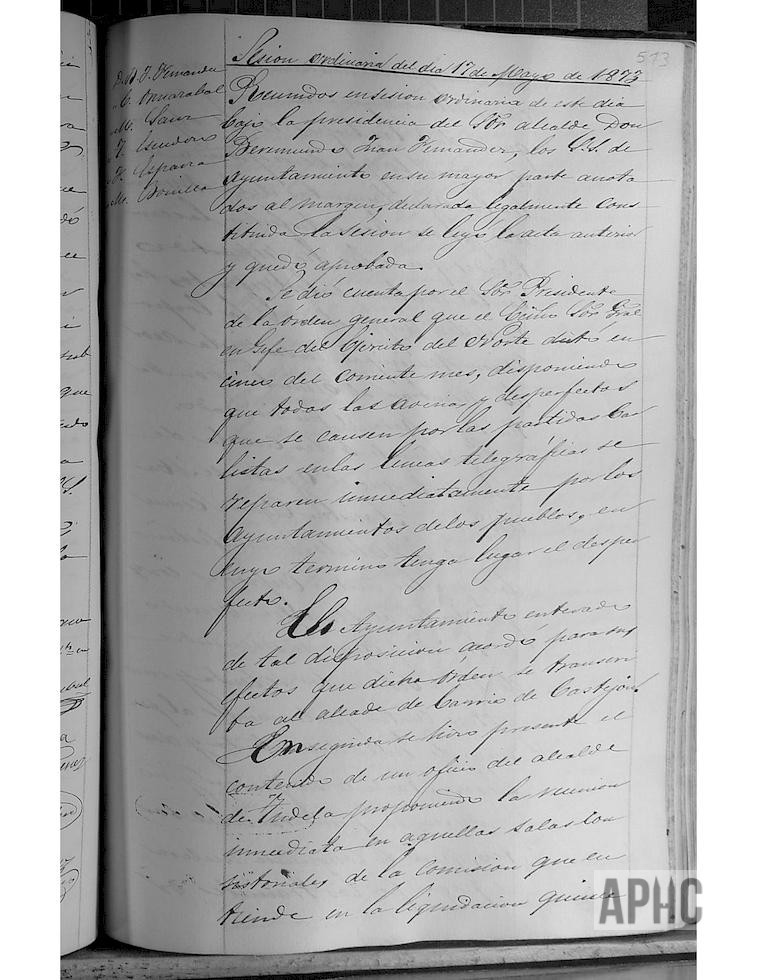 513
Sesion ordinaria del dia 17 de Mayo de 1873
D. B. J. Fernandez
" C.
" M. Sanz
" J. Escudero
" J. España
" Ml. Bonilla
Reunidos en sesion ordinaria de este dia
bajo la presidencia del Sor. alcalde Don
Beremundo Juan Fernandez, los S.S. de
Ayuntamiento en su mayor parte anota
dos al margen, declarada legalmente cons
tituida la sesion se leyo la acta anterior
y quedó aprobada.
Se dió cuenta por el Sor. Presidente
de la orden general que el Exmo. Sor. Gral
en Gefe del Ejército del Norte dictó en
cinco del corriente mes, disponiendo
que todas las averias y desperfectos
que se causen por las partidas Car
listas en las lineas telegráficas se
reparen inmediatamente por los
Ayuntamientos de los pueblos, en
cuyo termino tenga lugar el desper
fecto.
El Ayuntamiento enterado
de tal disposicion acordó para sus
efectos que dicha órden se transcri
ba al alcade de barrio de Castejon.
En seguida se hizo presente el
contenido de un oficio del alcalde
de Tudela proponiendo la reunion
inmediata en aquellas salas con
sistoriales de la comision que en
tiende en la liquidacion
APHC